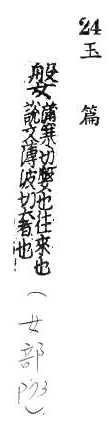 24
玉篇
媻 蒲寒切媻也往來也
說文薄波切奢也
(女部 P73)